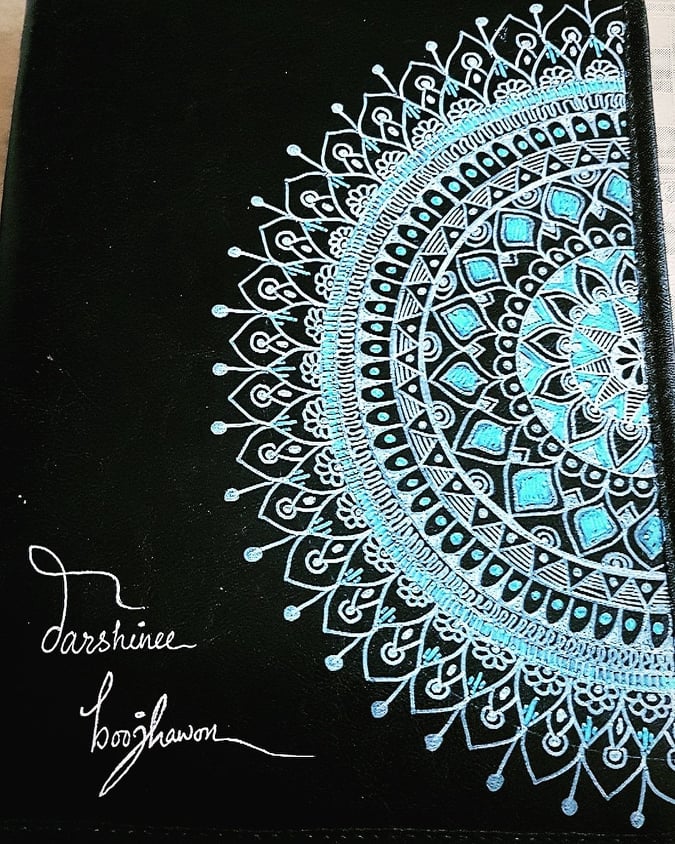 Darshinee
boojhawon